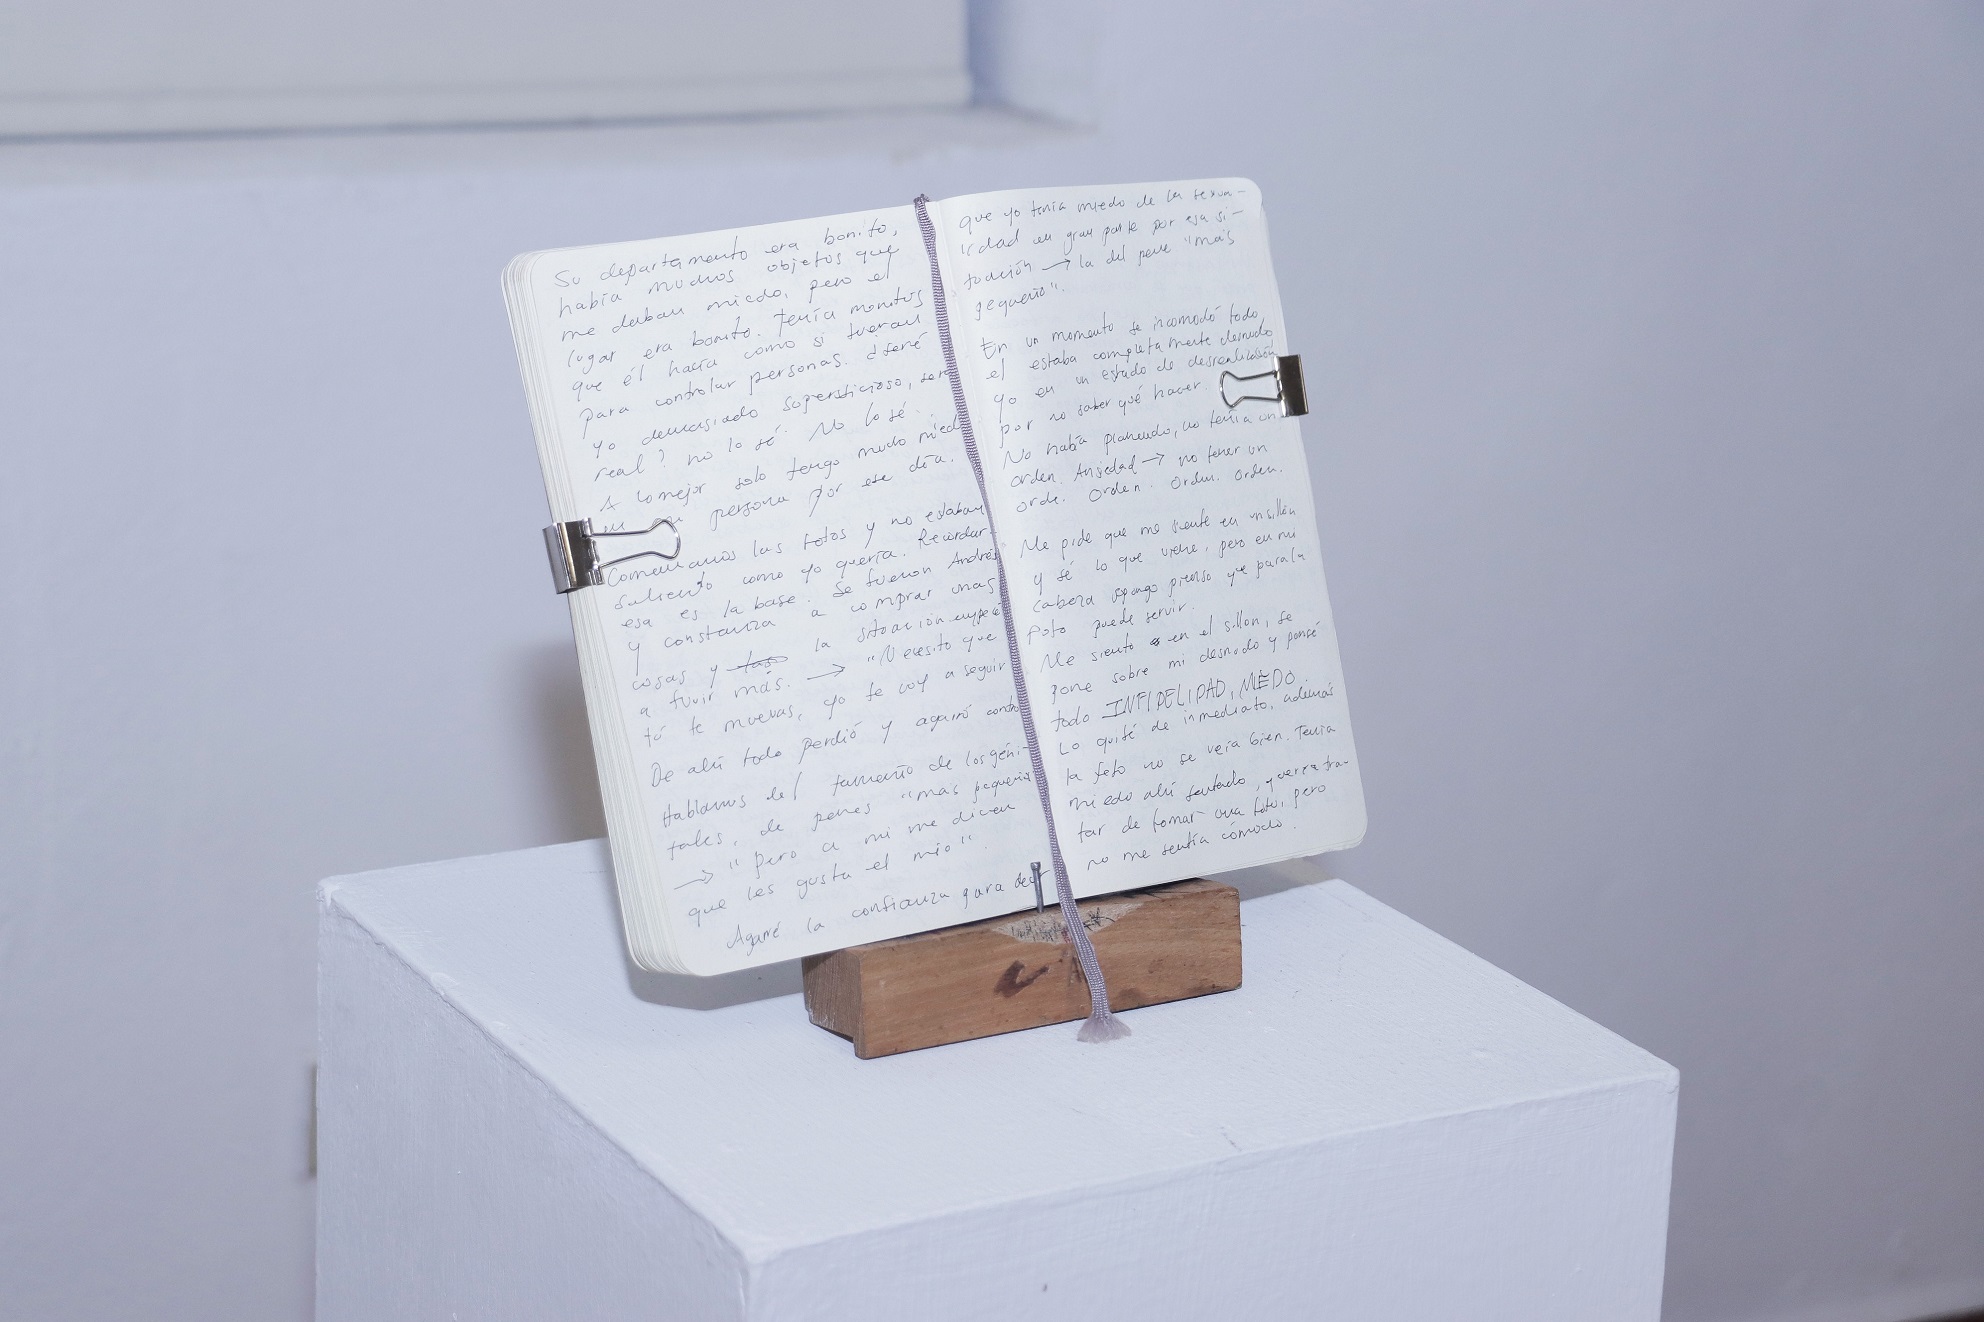 Su departamento era bonito,
había muchos objetos que
me daban miedo, pero el
lugar era bonito. Tenía monitos
que él hacía como si fueran
para controlar personas. ¿Seré
yo demasiado supersticioso, será
real? no lo sé. No lo sé.
A lo mejor solo tengo mucho miedo
persona por ese día.
Comenzamos las fotos y no estaban
saliendo como yo quería. Recordar-
esa es la base. Se fueron Andrés
y Constanza a comprar unas
cosas y la situación empezó
a fluir más. → "Necesito que
tú te muevas, yo te voy a seguir
De ahí todo perdió y agarró control
Hablamos del tamaño de los geni-
tales, de penes "más pequeños"
→ "pero a mi me dicen
que les gusta el mío".
Agarré la confianza para decir
que yo tenía miedo de la sexua-
lidad en gran parte por esa si-
tuación → la del pene "más
pequeño".
En un momento se incomodó todo
el estaba completamente desnudo
yo en un estado de desrealización
por no saber qué hacer.
No había planeado, no tenía un
orden. Ansiedad → no tener un
orde. Orden. Orden. Orden.
Me pide que me siente en un sillón
y sé lo que viene, pero en mi
cabeza pienso que para la
foto puede servir.
Me siento en el sillón, se
pone sobre mi desnudo y pensé
todo INFIDELIDAD, MIEDO.
Lo quité de inmediato, además
la foto no se veía bien. Tenía
miedo ahí sentado, quería tra-
tar de tomar una foto, pero
no me sentía cómodo.